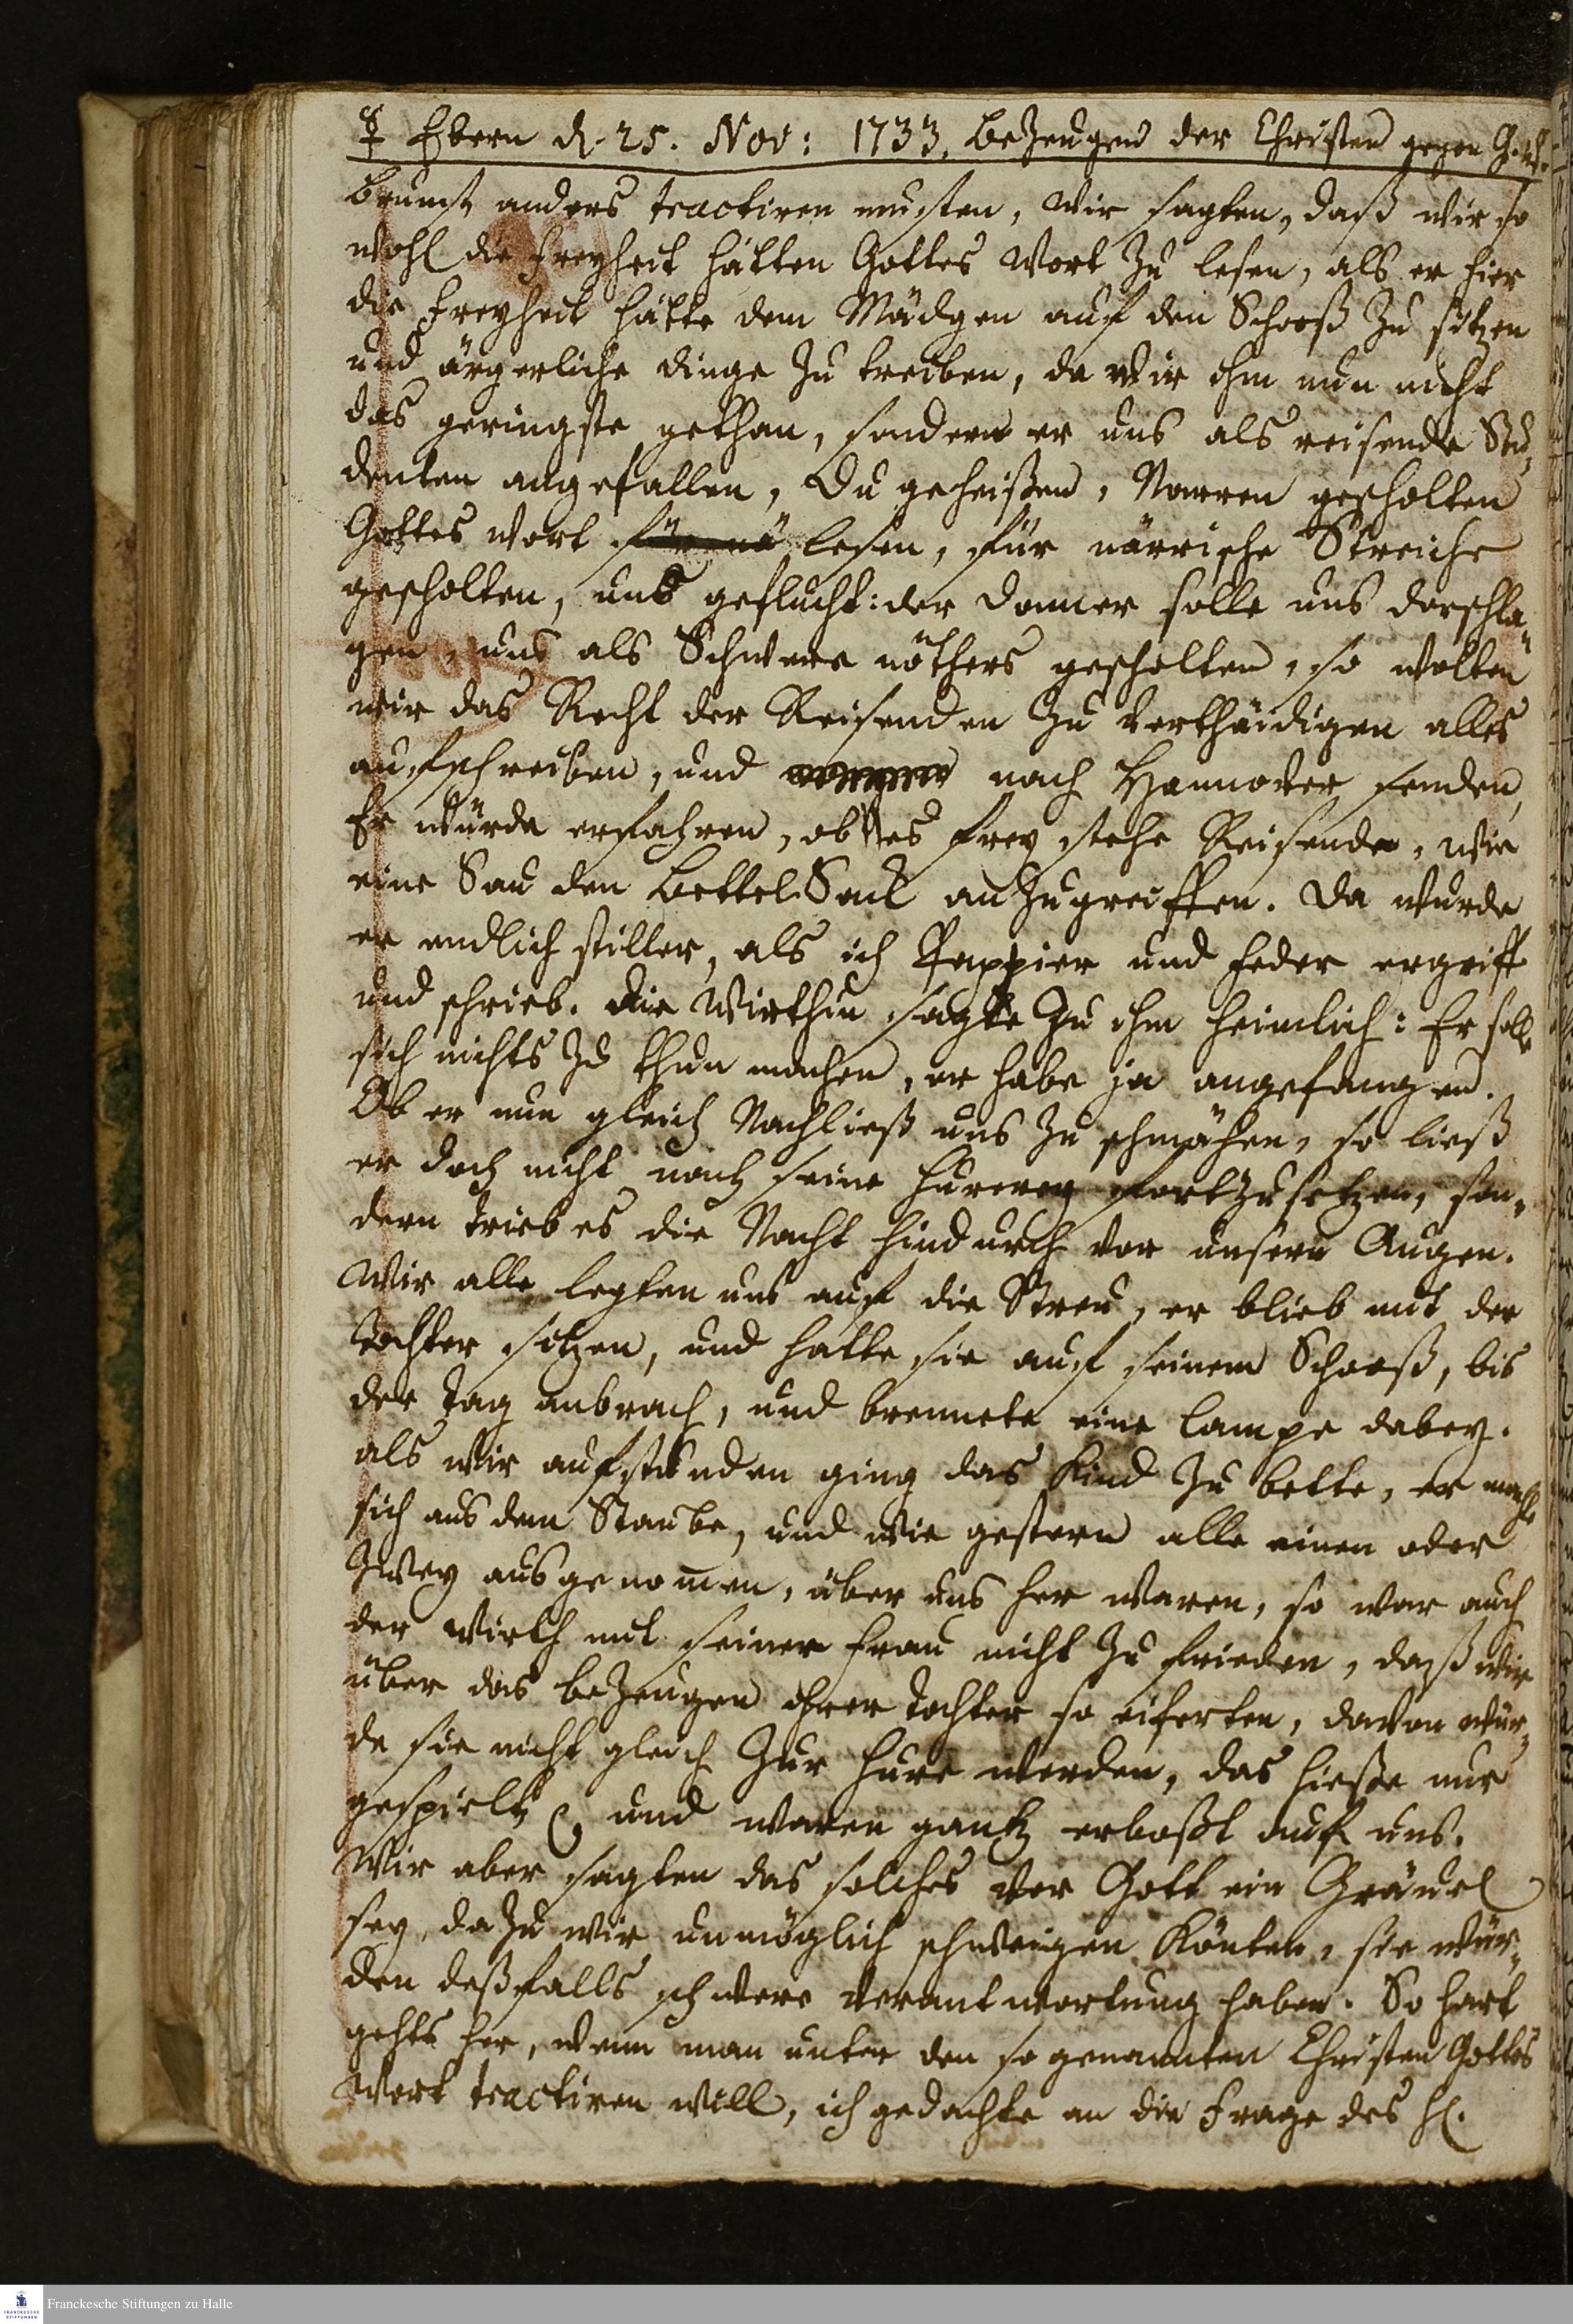 ☿ Ebern d. 25. Nov: 1733. Bezeugen der Christen gegen G. W.
brunst anders tractiren musten, wir sagten, daß wir so
wohl die Freyheit hätten Gottes Wort zu lesen, als er hier
die Freyheit hätte dem Mädgen auf den Schooß zu sitzen
und ärgerliche dinge zu treiben, da wir ihm nun nicht
das geringste gethan, sondern er uns als reisende Stu-
denten angefallen, Du geheißen, Narren gescholten
Gottes Wort lesen, für närrische Streiche
gescholten, und geflucht: der Donner solle uns derschla-
gen, uns als Schwere nöthers gescholten, so wolten
wir das Recht der Reisenden zu vertheidigen alles
aufschreiben, und nach Hannover senden,
Er würde erfahren, ob es frey stehe Reisende, wie
eine Sau den BettelSack anzugreiffen. Da wurde
er endlich stiller, als ich Pappier und Feder ergriff
und schrieb. Die Wirthin sagte zu ihm heimlich: Er solle
sich nichts zu thun machen, er habe ja angefangen.
Ob er nun gleich Nachließ uns zu schmähen, so ließ
er doch nicht nach seine Hurerey fortzusetzen, son-
dern trieb es die Nacht hindurch vor unsern Augen.
Wir alle legten uns auf die Streu, er blieb mit der
Tochter sitzen, und hatte sie auf seinem Schooß, bis
der Tag anbrach, und brennete eine Lampe dabey.
als wir aufstunden ging das Kind zu bette, er machte
sich aus dem Staube, und wie gestern alle einen oder
zwey ausgenommen, über uns her waren, so war auch
der Wirth mit seiner Frau nicht zu frieden, daß wir
über das bezeugen ihrer Tochter so eiferten, davon wür-
de sie nicht gleich zur Hure werden, das hieße nur
gespielt, und waren gantz erboßt auf uns.
Wir aber sagten das solches vor Gott ein Gräuel
sey, dazu wir unmöglich schweigen könten, sie wür-
den deßfalls schwere verantwortung haben. So hart
gehts her, wenn man unter den so genannten Christen Gottes
Wort tractiren will, ich gedachte an die Frage des H.
Franckesche Stiftungen zu Halle
FRANCKESCHE
STIFTUNGEN